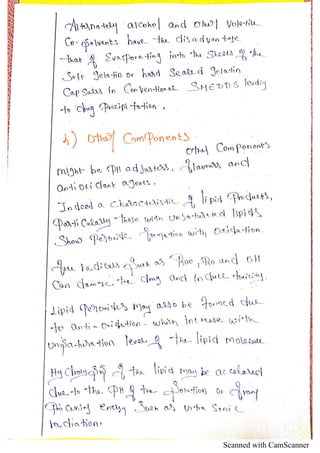 Alternately alcohol and other volatile
Co-solvents have the disadvantage
that of Evaporating into the Shells of the
Soft gelatin or hard Sealed gelatin
Capsules in Conventional SMEDDS leadig
to drug Precipitation.
4) Other Components
Other Components
might be PH adjusters, flavours and
anti oxidant agents.
Indeed a Characteristic of lipid Products,
Particularly those with unsaturated lipids
Show Peroxide formation with Oxidation.
free radicals Such as ROO, RO and OH
Can damage the drug and induce toxicity.
Lipid Peroxides may also be formed due
to anti-oxidation which increase with
unsaturation level of the lipid molecule.
Hydrolysis of the lipid may be accelarated
due to the PH of the Solution or from
Processing energy Such as ultra Sonic
radiation.
Scanned with CamScanner